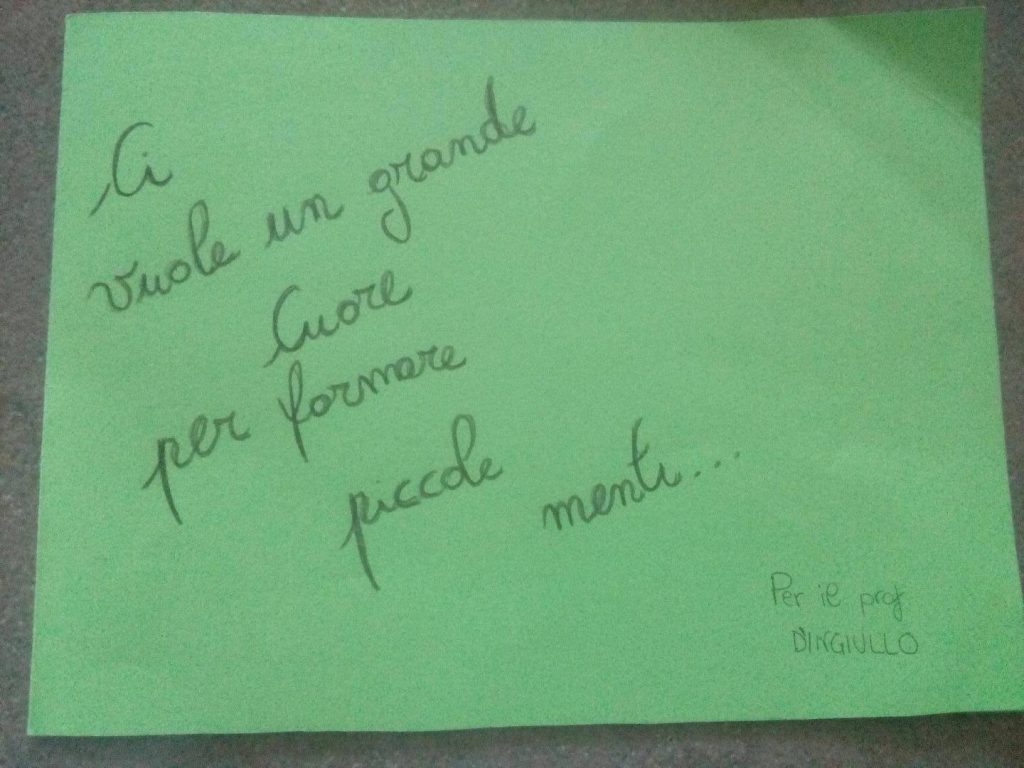 Ci
vuole un grande
Cuore
per formare
piccole menti...
Per il prof
D'INGIULLO